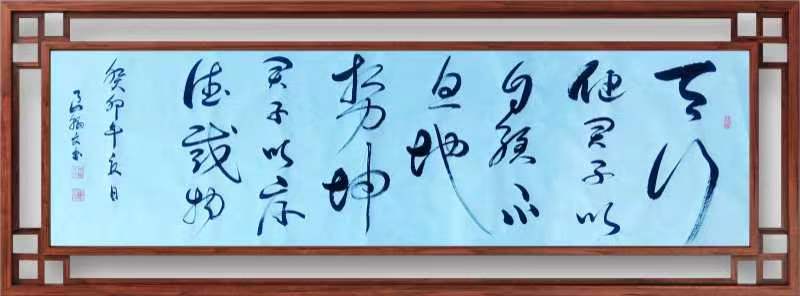 天行
健君子以
自強不
息地
勢坤
君子以厚
德載物
癸卯年夏日